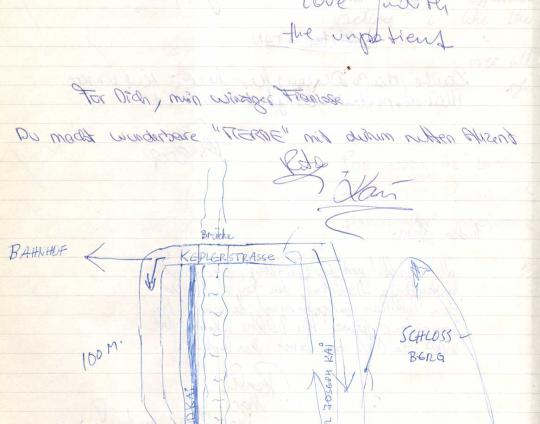 love Judith
the unpatient
Für Dich, mein winziger Franzose
Du machst wunderbare "MERDE" mit deinem netten Akzent
Brücke
BAHNHOF
KEPLERSTRASSE
100 M.
JOSEPH KAI
SCHLOSS-
BERG
KAI